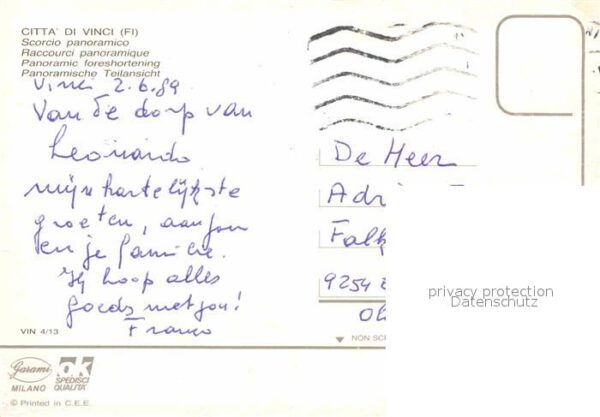 CITTA' DI VINCI (FI)
Scorcio panoramico
Raccourci panoramique
Panoramic foreshortening
Panoramische Teilansicht
Vinci 2.6.89
Van de dorp van
Leonardo
mijn hartelijkste
groeten, aan jou
en je familie.
Ik hoop alles
goeds met jou!
Franco
VIN 4/13
De Heer
Adri
Falk
9254
privacy protection
Datenschutz
NON SC
Garami
MILANO
ok
SPEDISCI
QUALITA'
© Printed in C.E.E.